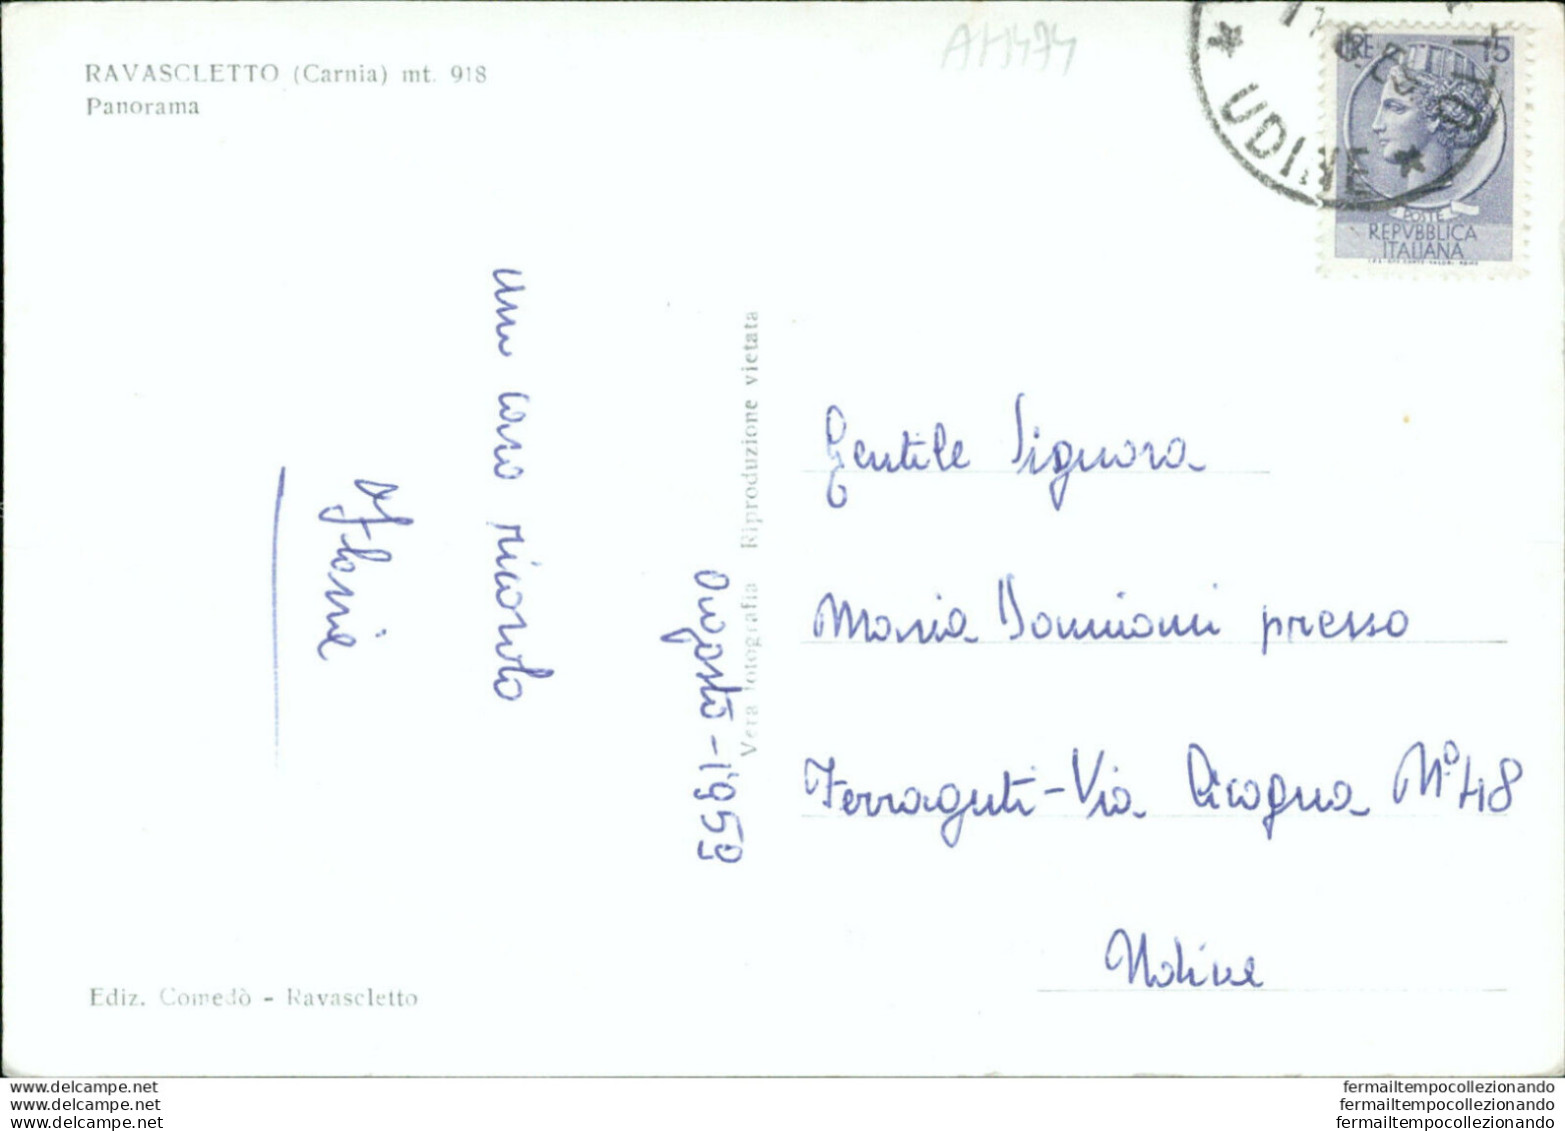 RAVASCLETTO (Carnia) mt. 918
Panorama
AH474
UDINE
LIRE 15
POSTE
REPVBBLICA
ITALIANA
un caro ricordo
Agosto - 1959
Vera fotografia Riproduzione vietata
Gentile Signora
Maria Damiani presso
Ferraguti - Via Cicogna N° 48
Udine
Ediz. Comedò - Ravascletto
www.delcampe.net
www.delcampe.net
www.delcampe.net
fermailtempocollezionando
fermailtempocollezionando
fermailtempocollezionando